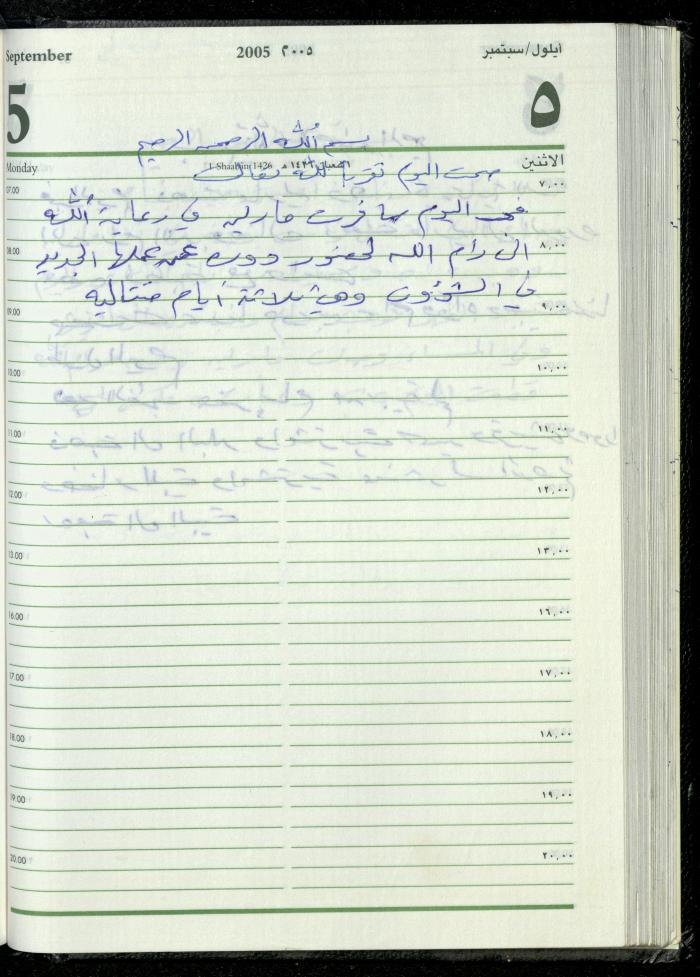 September 2005 ٢٠٠٥ أيلول/سبتمبر
5 ٥
بسم الله الرحمن الرحيم
Monday 1 Shaaban 1426 ١ شعبان ١٤٢٦ هـ الاثنين
صمت اليوم تقربا لله تعالى
07.00 ٧,٠٠
في اليوم سافرت مارلين في رعاية الله
08.00 ٨,٠٠
الى رام الله لحضور دورة عن عملها الجديد
في الشؤون وهي ثلاثة أيام متتالية
09.00 ٩,٠٠
10.00 ١٠,٠٠
11.00 ١١,٠٠
12.00 ١٢,٠٠
13.00 ١٣,٠٠
16.00 ١٦,٠٠
17.00 ١٧,٠٠
18.00 ١٨,٠٠
19.00 ١٩,٠٠
20.00 ٢٠,٠٠